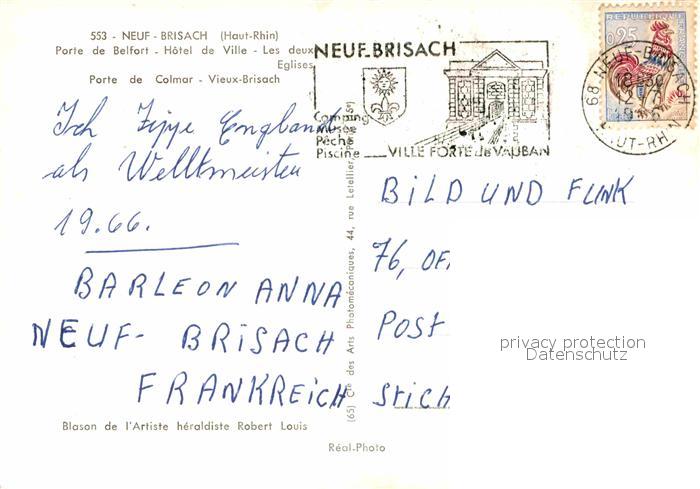 553 - NEUF-BRISACH (Haut-Rhin)
Porte de Belfort - Hôtel de Ville - Les deux
Eglises
Porte de Colmar - Vieux-Brisach
NEUF-BRISACH
Camping
Musée
Pêche
Piscine
VILLE FORTE de VAUBAN
REPUBLIQUE
0,25
68 NEUF-BRISACH
HAUT-RHIN
Ich Tippe England
als Welltmeister
19.66.
BARLEON ANNA
NEUF- BRISACH
FRANKREICH
BILD UND FUNK
76, OF.
POST
STICH
privacy protection
Datenschutz
(65) Cie des Arts Photomécaniques, 44, rue Letellier
Blason de l'Artiste héraldiste Robert Louis
Réal-Photo